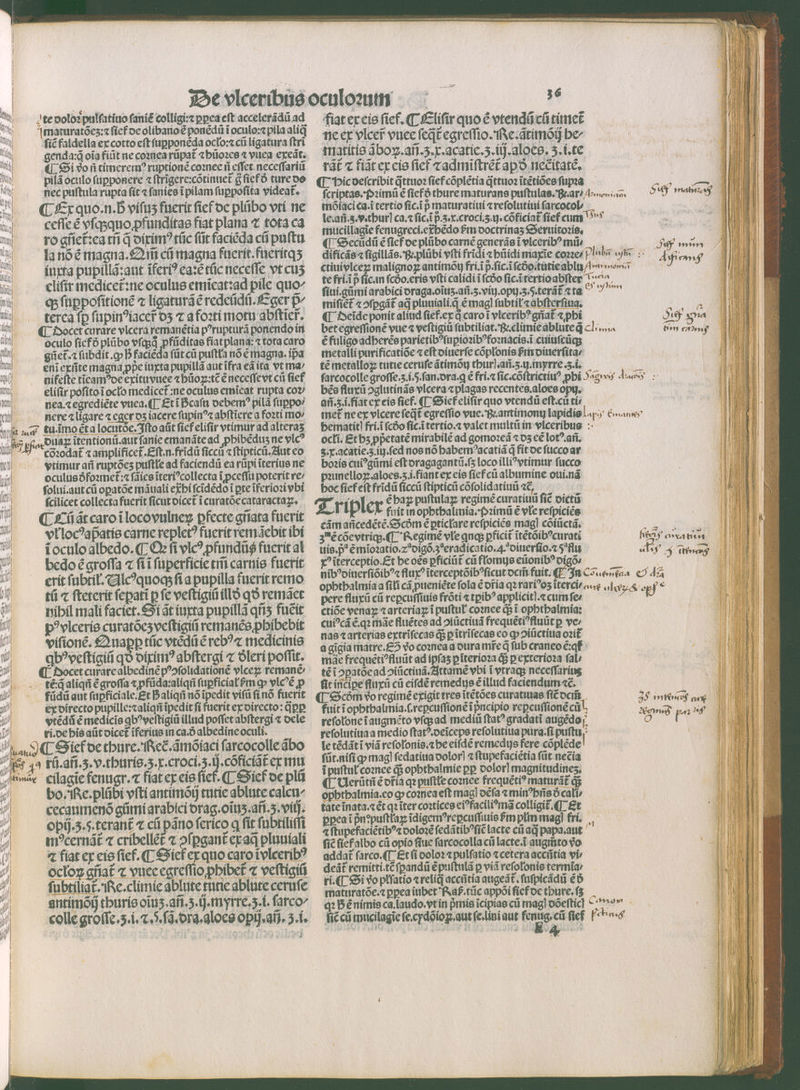 De vlceribus oculorum
36
te dolor pulsatiuo saniē colligi: ⁊ ꝓpea est accelerādū ad
maturatōeʒ: ⁊ sief de olibano ē ponēdū ī oculo: ⁊ pila aliq̄
sic faldella ex cotto est supponēda oclo: ⁊ cū ligatura stri
genda: q̄ oīa fiūt ne cornea rūpat̄ ⁊ hūores ⁊ vuea exeāt.
¶ Si v̄o ñ timerem⁹ ruptionē cornee ñ esset necessariū
pilā oculo supponere ⁊ strīgere: cōtinuet̄ ḡ sief d̄ ture do
mec pustula rupta sit ⁊ sanies ī pilam supposita videat̄.
¶ Ex quo. n. h̄ visuʒ fuerit sief de plūbo vti ne
cesse ē vsqꝫquo ꝓfunditas fiat plana ⁊ tota ca
ro gn̄et̄: ea tn̄ q̄ dixim⁹ tūc sūt faciēda cū pustu
la nō ē magna. Qm̄ cū magna fuerit. fueritqꝫ
iuxta pupillā: aut īferi⁹ ea: ē tūc necesse vt cuʒ
elisir medicet̄: ne oculus emicat: ad pile quo
qꝫ suppositionē ⁊ ligaturā ē redeūdū. Eger p̄
terea sꝑ supin⁹ iacet̄ dʒ ⁊ a forti motu abstiet̄.
¶ Docet curare vlcera remanētia p⁹ rupturā ponendo in
oculo sief d̄ plūbo vsqꝫ q̄ ꝓfūditas fiat plana: ⁊ tota caro
gn̄et̄. ⁊ subdit. ꝙ h̄ faciēda sūt cū pustl̄a nō ē magna. ip̄a
eni exn̄te magna ꝓpe iuxta pupillā aut īfra eā ita vt ma
nifeste tīeam⁹ de exitu vuee ⁊ hūoꝝ: tē ē necesse vt cū sief
elisir posito ī oclo medicet̄: ne oculus emicat rupta cor
nea. ⁊ egrediēte vuea. ¶ Et ī h̄ casu debem⁹ pilā suppo
nere ⁊ ligare ⁊ eger dʒ iacere supin⁹ ⁊ abstiere a forti mo
tu. īmo ēt a locutōe. Isto aūt sief elisir vtimur ad alteraʒ
duaꝝ ītentionū. aut sanie emanāte ad ꝓhibēduʒ ne vlc⁹
cōrodat̄ ⁊ amplificet̄. Est. n. frīdū siccū ⁊ stipticū. Aut eo
vtimur añ ruptōeʒ pustl̄e ad faciendū ea rūpi īterius ne
oculus dформet̄: ⁊ saies īteri⁹ collecta ī ꝓcessu poterit re
solui. aut cū oꝑatōe māuali ex̄hi scīdēdo ī ꝑte īferiori vbi
scilicet collecta fuerit sicut dicet̄ ī curatōe cataractaꝝ.
¶ Cū āt caro ī loco vulneꝝ ꝑfecte gn̄ata fuerit
vl̓ loc⁹ aꝑatis carne replet⁹ fuerit remāebit ibi
ī oculo albedo. ¶ Qꝛ si vlc⁹ ꝓfundūꝫ fuerit al
bedo ē grossa ⁊ si ī superficie tm̄ carnis fuerit
erit subtil̓. Vlc⁹ quoqꝫ si a pupilla fuerit remo
tū ⁊ steterit seꝑati ꝑ se vestigiū illd̓ qd̓ remāet
nihil mali faciet. Si āt iuxta pupillā qn̄ʒ fuerit
p⁹ vlceris curatōeʒ vestigiū remanēs ꝓhibebit
visionē. Quaꝓp̄ tūc vtēdū ē reb⁹ ⁊ medicinis
qb⁹ vestigiū qd̓ dixim⁹ abstergi ⁊ d̓leri possit.
¶ Docet curare albedinē p⁹ ꝯsolidationē vlceꝝ remanē
tē: q̄ aliqñ ē grossa ⁊ ꝓfūda: aliqñ suꝑficial̓ fm̄ ꝙ vlc⁹ ē ꝓ
fūdū aut suꝑficiale. Et h̄ aliqñ nō īpedit visū si nō fuerit
ex directo pupille: ⁊ aliqñ īpedit si fuerit ex directo: q̄ꝓp̄
vtēdū ē medicīs qb⁹ vestigiū illud posset abstergi ⁊ dele
ri. de his aūt dicet̄ īferius in ca. d̓ albedine oculi.
¶ Sief de thure. Recˀ. āmōiaci sarcocolle ābo
rū. añ. ʒ. v. thuris. ʒ. x. croci. ʒ. ij. cōficiāt̄ ex mu
cilagīe fenugr. ⁊ fiat ex eis sief. ¶ Sief de plū
bo. Re. plūbi vsti antimōij tutie ablute calcu
cecaumenō gūmi arabici drag. oīuʒ. añ. ʒ. viij.
opij. ʒ. s. terant̄ ⁊ cū pāno serico q̄ sit subtilissi
m⁹ cernāt̄ ⁊ cribellēt̄ ⁊ ꝯspgant̄ ex aq̄ pluuiali
⁊ fiat ex eis sief. ¶ Sief ex quo caro ī vlcerib⁹
ocloꝝ gn̄at̄ ⁊ vuee egressio ꝓhibet̄ ⁊ vestigiū
subtiliat̄. Re. climie ablute tutie ablute ceruse
antimōij thuris oīuʒ. añ. ʒ. ij. myrre. ʒ. i. sarco
colle grosse. ʒ. i. ⁊. s. fā. dra. aloes opij. añ. ʒ. i.
fiat ex eis sief. ¶ Elisir quo ē vtendū cū timet̄
ne ex vlcer̄ vuee seqt̄ egressio. Re. ātimōij he
matitis āboꝝ. añ. ʒ. x. acacie. ʒ. iij. aloes. ʒ. i. te
rāt̄ ⁊ fiāt ex eis sief ⁊ admīstrēt̄ ap̓ d̓ nec̄itatē.
¶ Hic describit q̄ttuor sief cōpletia q̄ttuor ītētiōes supra
scriptas. Primū ē sief d̓ thure maturans pustulas. ℞. ar
mōiaci ca. ī tertio sic. ī p̄ maturatiui ⁊ resolutiui sarcocol
le. añ. ʒ. v. thur̓ ca. ⁊ sic. ī p̄. ʒ. x. croci. ʒ. ij. cōficiat̄ sief cum
mucillagīe fenugreci. ex̄hēdo fm̄ doctrinaʒ Seruitoris.
¶ Secūdū ē sief de plūbo carnē generās ī vlcerib⁹ mū
dificās ⁊ sigillās. ℞. plūbi vsti frīdi ⁊ hūidi maxīe corre
ctiui vlceꝝ malignoꝝ antimōij fri. ī p̄. sic. ī scd̓o. tutie ablu
te fri. ī p̄ sic. in scd̓o. eris vsti calidi ī scd̓o sic. ī tertio abster
siui. gūmi arabici draga. oīuʒ. añ. ʒ. viij. opij. ʒ. s. terāt̄ ⁊ ta
misiēt̄ ⁊ ꝯspgāt̄ aq̄ pluuiali. q̄ ē mag̓ subtil̓ ⁊ abstersiua.
¶ Deīde ponit aliud sief. ex q̄ caro ī vlcerib⁹ gn̄at̄ ⁊ ꝓhi
bet egressionē vue ⁊ vestigiū subtiliat. ℞. climie ablute q̄
ē fuligo adherēs parietib⁹ superiorib⁹ fornacis. ī cuiuscūqꝫ
metalli purificatiōe ⁊ est diuerse cōplonis fm̄ diuersita
tē metalloꝝ tutie ceruse ātimōij thur̓. añ. ʒ. ij. myrre. ʒ. i.
sarcocolle grosse. ʒ. i. s. san. dra. q̄ ē fri. ⁊ sic. cōstrictiu⁹ ꝓhi
bēs fluxū ꝯglutinās vlcera ⁊ plagas recentes. aloes opij.
añ. ʒ. i. fiat ex eis sief. ¶ Sief elisir quo vtendū est. cū ti
met̄ ne ex vlcere seqt̄ egressio vue. ℞. antimonij lapidis
hematit̓ fri. ī scd̓o sic. ī tertio. ⁊ valet multū in vlceribus
ocl̓i. Et hʒ ꝓp̄etatē mirabilē ad gomoreā ⁊ dʒ eē lot⁹. añ.
ʒ. x. acatie. ʒ. iij. sed nos nō habem⁹ acatiā q̄ fit de succo ar
boris cui⁹ gūmi est dragagantū. sʒ loco illi⁹ vtimur succo
prunelloꝝ. aloes. ʒ. i. fiant ex eis sief cū albumine oui. nā
hoc sief est frīdū siccū stipticū cōsolidatiuū ⁊c̄.
Triplex ē haꝝ pustulaꝝ regimē curatiuū sic̄ dictū
fuit in ophthalmia. Primū ē vl̓e respiciēs
cām añcedētē. Scd̓m ē ꝑtic̄lare respiciēs mag̓ cōiūctā.
3⁹ ē cōe vtriqꝫ. ¶ Regimē vl̓e qnqꝫ ꝑficit̄ ītētōib⁹ curati
uis. p⁹ ē mīoratio. 2⁹ digō. 3⁹ eradicatio. 4⁹ diuersio. ⁊ 5⁹ flu
x⁹ īterceptio. Et he oēs ꝑficiūt̄ cū flomus euōnib⁹ digō
nib⁹ diuersiōib⁹ ⁊ flux⁹ īterceptōib⁹ sicut dcm̄ fuit. ¶ In
ophthalmia a sīli cā ꝓueniēte sola ē dr̄ia qꝛ rari⁹ dʒ īterci
pere fluxū cū reꝑcussiuis frōti ⁊ tꝑib⁹ applicit̓. ⁊ cum se
ctiōe venaꝝ ⁊ arteriaꝝ ī pustul̓ cornee qꝫ ī ophthalmia:
cui⁹ cā ē. qꝛ māe fluētes ad ꝯiūctiuā frequēti⁹ fluūt ꝑ ve
nas ⁊ arterias extrīsecas qꝫ ꝑ ītrīsecas eo ꝙ ꝯiūctiua orit̄
a gigia matre. Sʒ v̄o cornea a dura mr̄e q̄ sub craneo ē: qr̄
māe frequēti⁹ fluūt ad ip̄saʒ ꝑ īteriora qꝫ ꝑ exteriora sal
tē ī ꝯpatōe ad ꝯiūctiuā. Attamē vbi ī vtraqꝫ necessarius
sit īncipe fluxū cū eisdē remedijs ē illud faciendum ⁊c̄.
¶ Scd̓m v̄o regimē exigit tres ītētōes curatiuas sic̄ dcm̄
fuit ī ophthalmia. s. reꝑcussionē ī prīcipio reꝑcussionē cū
resol̓one ī augmēto vsqꝫ ad mediū stat⁹ gradatī augēdo
resolutiua a medio stat⁹. deīceps resolutiua pura. sī pustu
le tēdāt ī viā resol̓onis. ⁊ he eisdē remedijs fere cōplēde
sūt. nisi ꝙ mag̓ sedatiua dolor̓ ⁊ stupefaciētia sūt nec̄ia
ī pustul̓ cornee qꝫ ophthalmie ꝓp̄ dolor̓ magnitudineʒ.
¶ Uerūtn̄ ē dr̄ia qꝛ pustl̄e cornee frequēti⁹ maturāt̄ qꝫ
ophthalmia. eo ꝙ cornea est mag̓ dēsa ⁊ min⁹ hn̄s d̓ cali
tate īnata. ⁊ ēt qꝛ īter cortices ei⁹ facili⁹ mā colligit̄. ¶ Et
ꝓpea ī prīn⁹ pustlaꝝ īdigem⁹ reꝑcussiuis fm̄ plm̄ mag̓ fri.
⁊ stupefaciētib⁹ ⁊ dolorē sedātib⁹ sic̄ lacte cū aq̄ papa. aut
sic̄ sief albo cū opio siue sarcocolla cū lacte. ī augmto v̄o
addat̄ sarco. ¶ Et si dolor ⁊ pulsatio ⁊ cetera accn̄tia vi
deāt̄ remitti. tē spandū ē pustulā ꝑ viā resol̓onis termīa
ri. ¶ Si v̄o pl̓satio ⁊ reliq̄ accn̄tia augeāt̄. suspicādū ē d̓
maturatōe. ⁊ ꝓpea iubet Rasˀ. tūc appōi sief de thure. sʒ
qꝛ h̄ ē nimis ca. laudo. vt in pˀmis īcipias cū mag̓ dōestic̓
sic̄ cū mucilagīe se. cydōioꝝ. aut se. lini aut fenug. cū sief
E 4